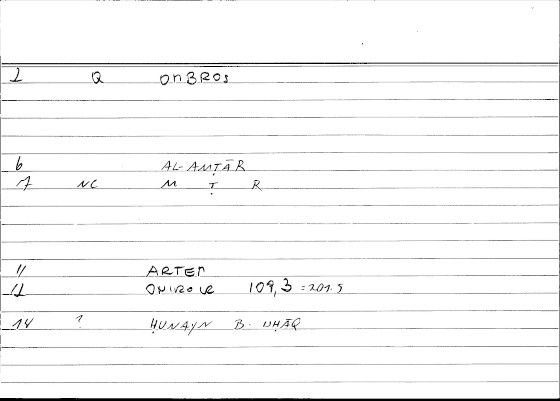 1 Q OMBROS
6 AL-AMṬĀR
7 NC M Ṭ R
11 ARTEM
12 ONIROCR 109,3 = 201.5
14 ? ḤUNAYN B. ISḤĀQ